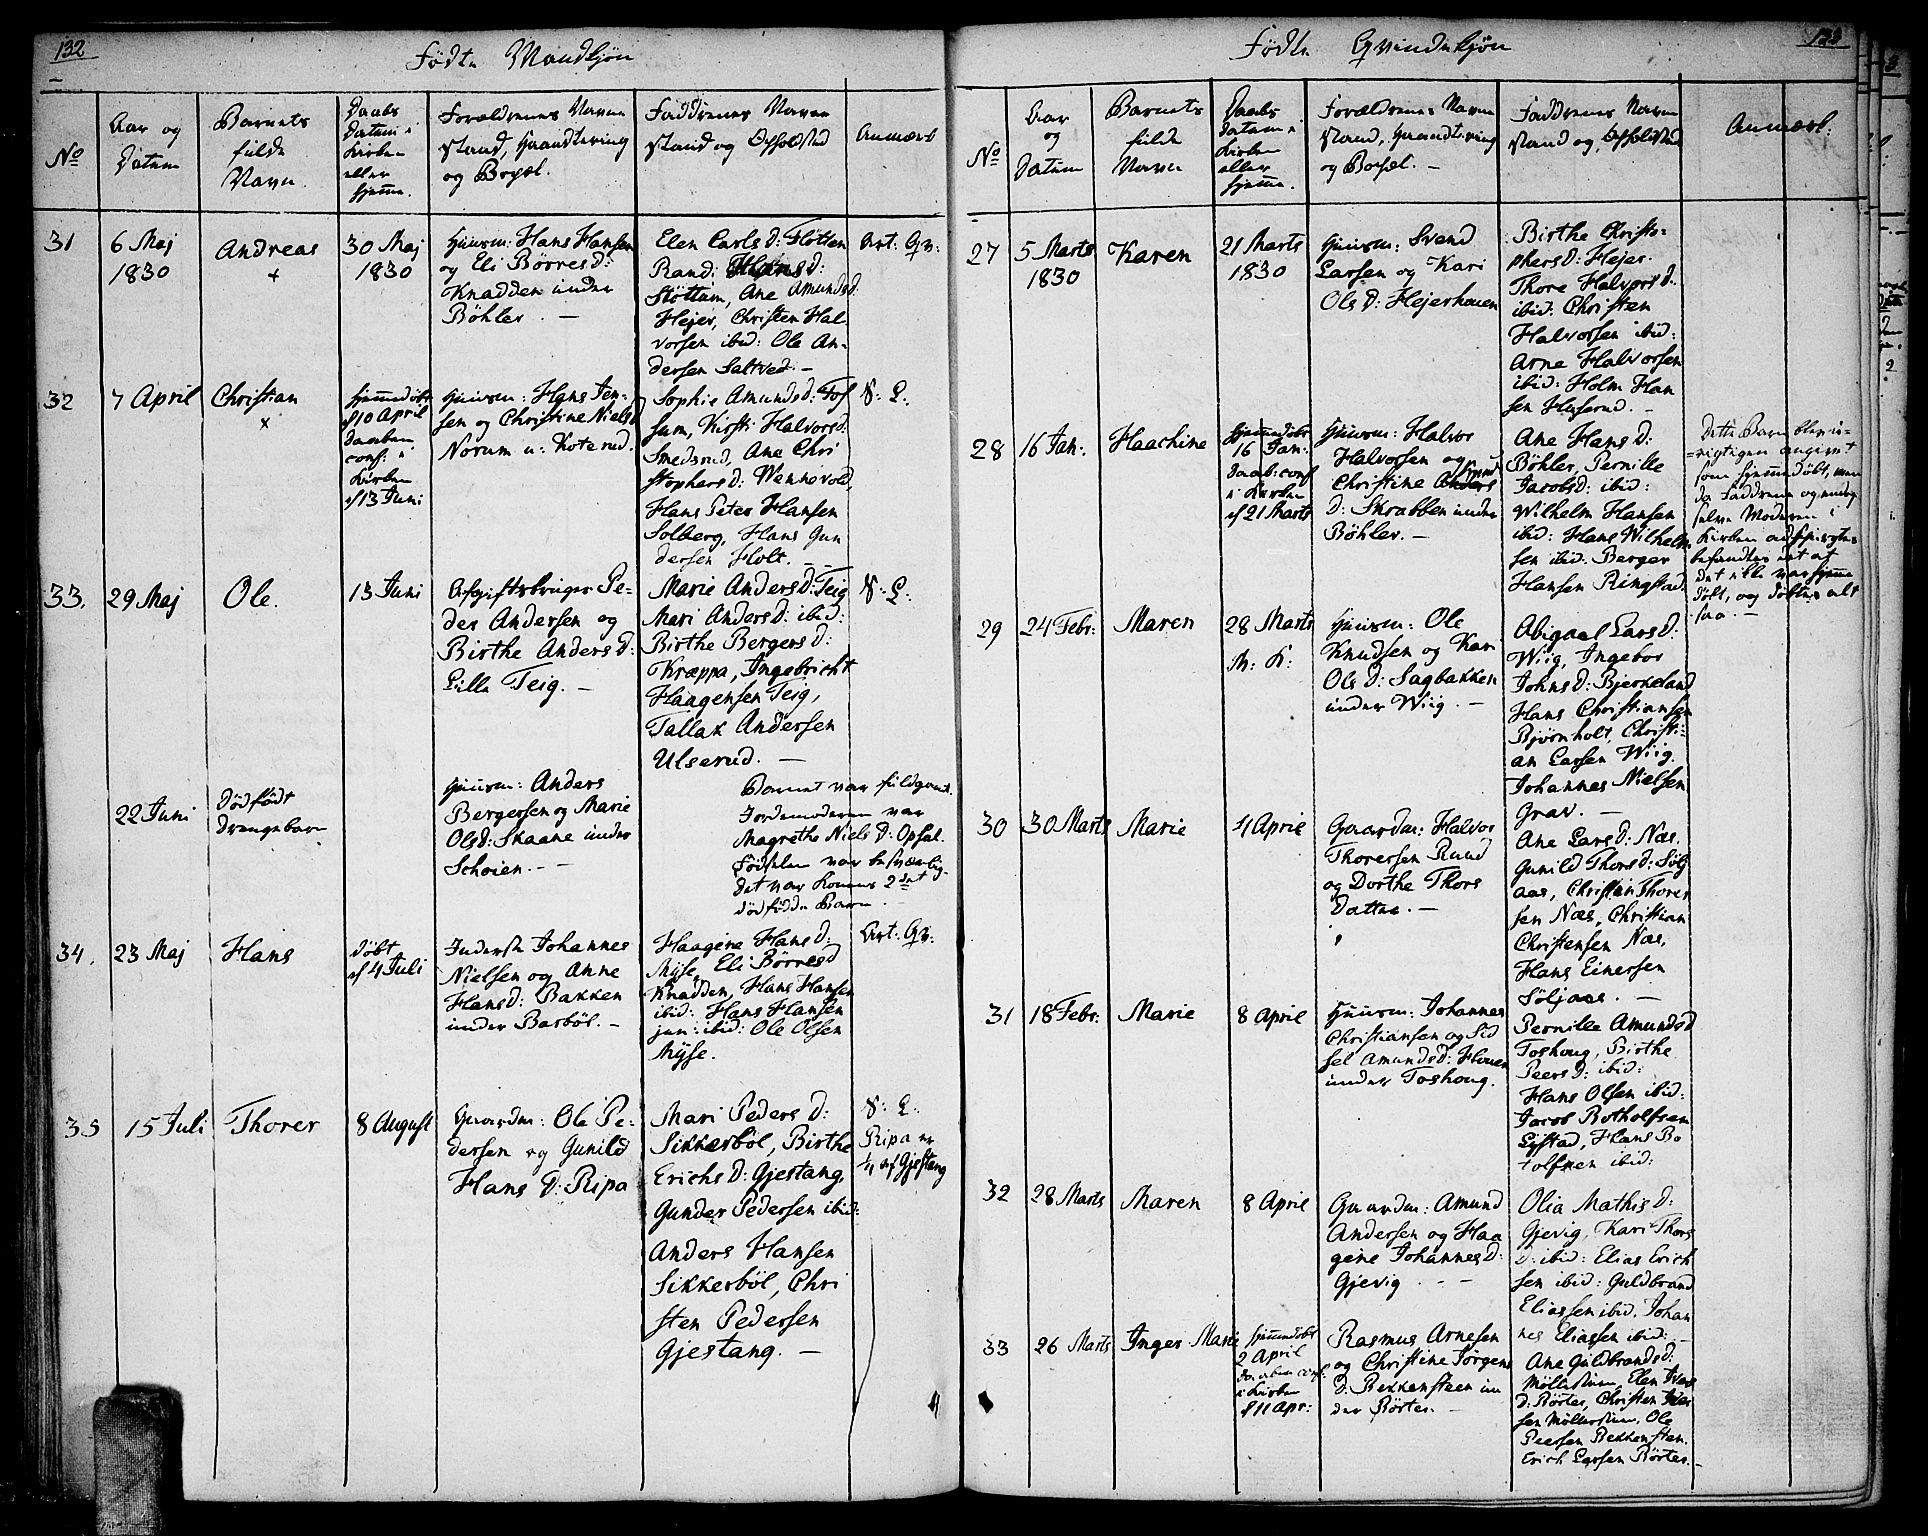 132
Födte Mandkjön
No
Aar og
Datum
Barnets
fulde
Navn.
Daabs
Datum i
Kirken
eller
hjemme.
Forældrenes Navne
Stand, Haandtering
og Bopæl.
Faddernes Navne
Stand og Opholdsted
Anmærk
31
6 Maj
1830
Andreas
+
30 Maj
1830
Huusm: Hans Hansen
og Eli Börresd:
Knadden under
Böhler. —
Elen Carlsd: Flotten
Rand: Hansd:
Stöttum, Ane Amundsd
Hejer, Christen Hal-
vorsen ibid: Ole An-
dersen Saltved. —
Art. Qv:
32
7 April
Christian
x
hjemmedöbt
d 10 April
Daaben
conf: i
Kirken
d 13 Juni
Huusm: Hans Jen-
sen og Christine Nielsd
Norum u: Koterud.
Sophie Amundsd: Tof
sum, Kirsti Halvorsd:
Smedsrud, Ane Chri
stophersd: Wennevold,
Hans Peter Hansen
Solberg, Hans Gun
dersen Holt. —
V: L:
33.
29 Maj
Ole.
13 Juni
Afgiftsbruger Pe-
der Andersen og
Birthe Andersd:
Lille Teig. —
Marie Andersd: Teig
Mari Andersd: ibid:
Birthe Bergersd:
Kræppa, Ingebricht
Haagensen Teig,
Tallak Andersen
Ulserud. —
V: L:
22 Juni
Dödfödt
Drengebarn
Huusm: Anders
Bergersen og Marie
Olsd: Skaane under
Schöien. —
Barnet var fuldbaaret.
Jordemoderen var
Magrethe Nielsd: Opsal.
Födselen var besværlig.
Det var Konens 2det
dödfödde Barn.
34.
23 Maj
Hans
döbt
d 4 Juli
Inderste Johannes
Nielsen og Anne
Hansd: Bakken
under Basböl. —
Haagine Hansd:
Myse, Eli Börresd
Knadden, Hans Hansen
ibid: Hans Hansen
jun: ibid: Ole Olsen
Myse.
Art: Qv:
35
15 Juli
Thorer
8 August
Gaardm: Ole Pe-
dersen og Gunild
Hansd: Ripa
Mari Pedersd:
Sikkerböl, Birthe
Erichsd: Gjestang,
Gunder Pedersen ibid:
Anders Hansen
Sikkerböl, Chri
sten Pedersen
Gjestang. —
V: L:
Ripa er
¼ af Gjestang
133
Födte Qvindekjön
No
Aar
og
Datum
Barnets
fulde
Navn
Daabs
Datum i
Kirken
eller
hjemme.
Forældrenes Navne
Stand, Haandtering
og Bopæl. —
Faddernes Navne
Stand og Opholdsted
Anmærk:
27
5 Marts
1830
Karen
21 Marts
1830
Huusm: Svend
Larsen og Kari
Olsd: Hejerhouen
Birthe Christo-
phersd: Hejer.
Thore Halvorsd:
ibid: Christen
Halvorsen ibid:
Arne Halvorsen
ibid: Holm Han
sen Huserud. —
28
16 Jan:
Haachine
hjemmedöbt
16 Jan:
Daab. conf
i Kirken
d 21 Marts
Huusm: Halvor
Halvorsen og
Christine Anders
d: Skrabben under
Böhler. —
Ane Hansd:
Böhler, Pernille
Jacobsd: ibid:
Wilhelm Hansen
ibid: Hans Wilhelm
sen ibid. Berger
Hansen Ringstad.
Dette Barn blev u-
rigtigen angivet
som hjemmedöbt, men
da Fadderne og endog
selve Moderen i
Kirken
befandtes det at
det ikke var hjemme
döbt, og döbtes alt
saa. —
29
24 Febr:
Maren
28 Marts
M: K:
Huusm: Ole
Knudsen og Kari
Olsd: Sagbakken
under Wiig. —
Abigael Larsd:
Wiig, Ingebor
Johnsd: Bjerkeland
Hans Christiansen
Bjørnholt, Christi-
an Larsen Wiig.
Johannes Nielsen
Grav. —
30
30 Marts
Marie
4 April
Gaardm: Halvor
Thorersen Ruud
og Dorthe Thors
Datter. —
Ane Larsd: Næs.
Gunild Thorsd: Sölj
aas, Christen Thorer
sen Næs, Christian
Christensen Næs,
Hans Einersen
Söljaas. —
31
18 Febr:
Marie
8 April
Huusm: Johannes
Christiansen og Sid
sel Amundsd: Houen
under Toshoug.
Pernille Amundsd
Toshoug, Birthe
Peersd: ibid:
Hans Olsen ibid:
Jacob Botholfsen
Lystad, Hans Bo
tolfsen ibid:
32
28 Marts
Maren
8 April
Gaardm: Amund
Andersen og Haa
gine Johannesd:
Gjevig. — —
Olia Mathisd:
Gjevig, Kari Thors
D: ibid: Elias Erich
sen ibid: Guldbrand
Eliassen ibid. Johan
nes Eliassen ibid: —
33
26 Marts
Inger Marie
hjemmedöbt
2 April
Daaben conf.
i Kirken
d 11 Apr:
Rasmus Arnesen
og Christine Jörgens
D: Bekkensteen un
der Börter. —
Ane Guldbrandsd:
Möllerstuen, Elen Ivers
D: Börter, Christen Iver
sen Möllerstuen, Ole
Peersen Bekkensten.
Erich Larsen Börter. —